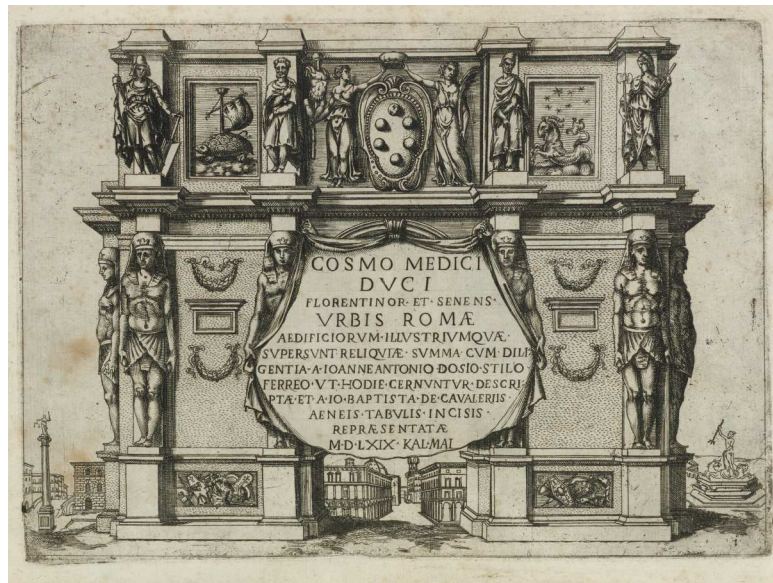 COSMO MEDICI
DVCI
FLORENTINOR· ET· SENENS·
VRBIS ROMÆ
AEDIFICIORVM· ILLVSTRIVMQVÆ·
SVPERSVNT RELIQVIÆ· SVMMA· CVM· DILI
GENTIA· A· IOANNE ANTONIO DOSIO· STILO
FERREO· VT· HODIE· CERNVNTVR· DESCRI
PTÆ· ET· A· IO· BAPTISTA· DE· CAVALERIIS·
AENEIS· TABVLIS· INCISIS·
REPRÆSENTATÆ
M·D·LXIX· KAL· MAI